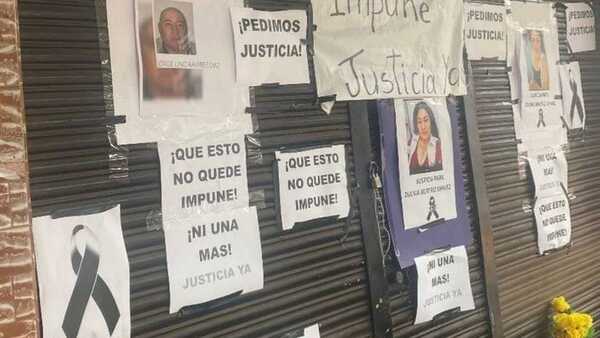 ¡PEDIMOS
JUSTICIA!
Impune
Justicia Ya
¡PEDIMOS
JUSTICIA!
¡QUE ESTO
NO QUEDE
IMPUNE!
¡NI UNA
MAS!
JUSTICIA YA
¡QUE ESTO
NO QUEDE
IMPUNE!
JUSTICIA PARA
¡NI UNA
MAS!
JUSTICIA YA
¡NI UNA
MAS!
¡QUE ESTO
NO QUEDE
IMPUNE!